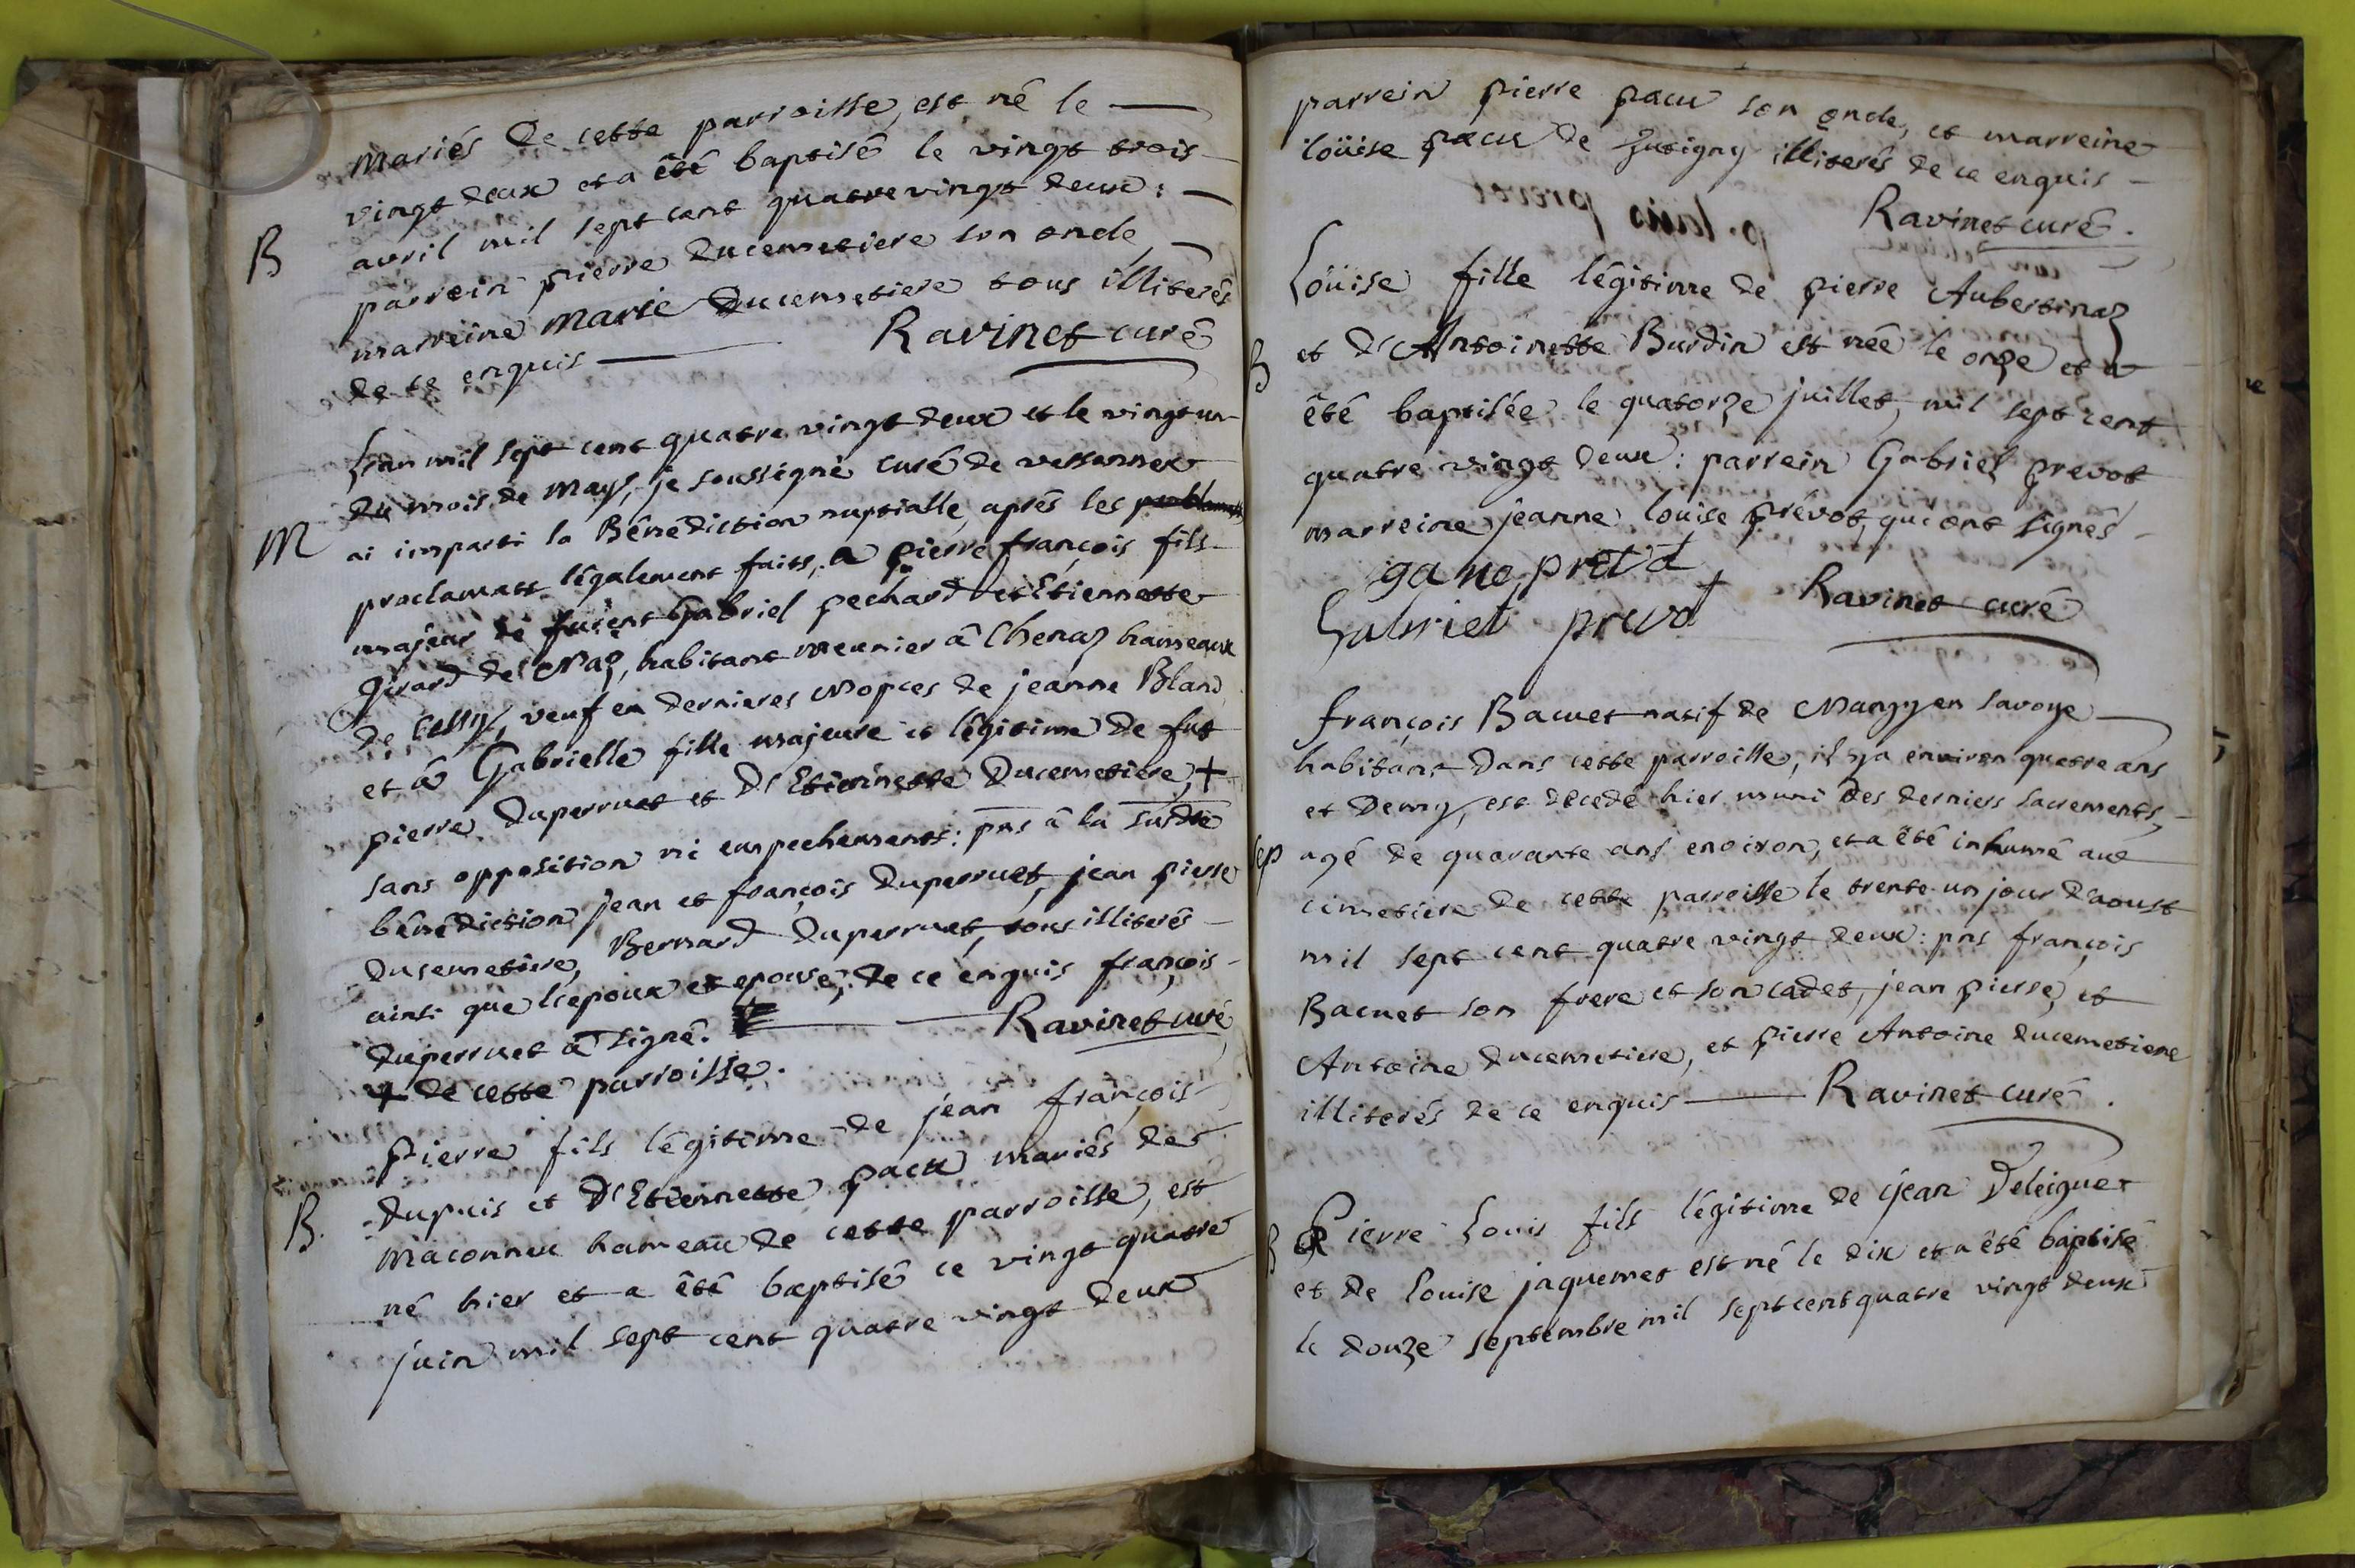 mariés de cette parroisse, est né le
vingt deux et a été baptisé le vingt trois
B
avril mil sept cent quatre vingt deux :
parrein pierre ducemetiere son oncle,
marreine marie ducemetiere tous illiterés
de ce enquis Ravinet curé
L'an mil sept cent quatre vingt deux et le vingt un
du mois de may, je soussigné curé de versonnex
M
ai imparti la Bénédiction nuptialle, aprés les
proclamats légalement faits, a pierre françois fils
majeur de furent Gabriel pechard et Etiennette
Girard de Naz, habitant meunier à Chenaz hameaux
de Cessy, veuf en dernieres Nopces de jeanne Blanc
et à Gabrielle fille majeure et légitime de fut
pierre duperruet et d'Etiennette ducemetiere, +
sans opposition ni empechements : pns à la susdte
bénédiction jean et françois duperruet, jean pierre
ducemetiere, Bernard duperruet, tous illiterés
ainsi que l'epoux et epouse, de ce enquis françois
duperruet a signé. Ravinet curé
+ de cette parroisse.
Pierre fils légitime de jean françois
dupuis et d'Etiennette pacu mariés de
B.
maconnex hameau de cette parroisse, est
né hier et a été baptisé ce vingt quatre
juin mil sept cent quatre vingt deux
parrein pierre pacu son oncle, et marreine
loüise pacu de illiterés de ce enquis
Ravinet curé.
Loüise fille légitime de pierre Aubertinaz
B
et d'Antoinette Burdin est née le onze et a
été baptisée le quatorze juillet, mil sept cent
quatre vingt deux : parrein Gabriel prevot
marreine jeanne louise prévot, qui ont signés
Gabriel Ravinet curé
françois Bacuet natif de en Savoye
habitant dans cette parroisse, il y a environ quatre ans
et demy, est décedé hier muni des derniers sacrements,
sep
agé de quarante ans environ, et a été inhumé aux
cimetiere de cette parroisse le trente un jour d'aoust
mil sept cent quatre vingt deux : pns françois
Bacuet son frere et son cadet, jean pierre, et
Antoine ducemetiere, et pierre Antoine ducemetiere
illiterés de ce enquis Ravinet curé.
B
Pierre Louis fils légitime de jean Deleiguet
et de louise jaquemet est né le dix et a été baptisé
le douze septembre mil sept cent quatre vingt deux